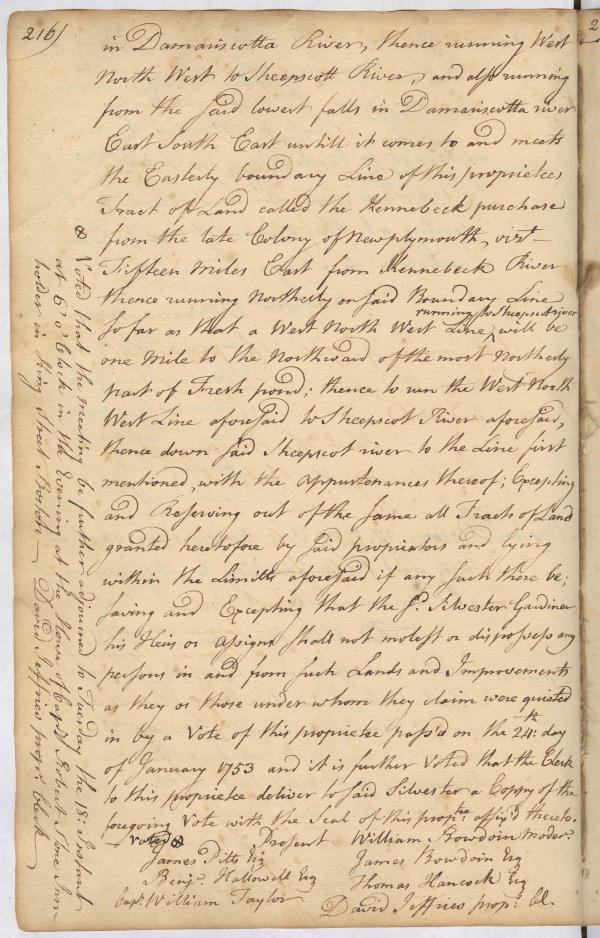 216)
in Damariscotta River, thence running West
North West to Sheepscott River, and also running
from the said lowest falls in Damariscotta river
East South East untill it comes to and meets
the Easterly boundary Line of this proprietees
Tract of Land called the Kennebeck purchase
from the late Colony of Newplymouth, vizt
Fifteen Miles East from Kennebeck River
thence running Northerly on said Boundary Line
running to Sheepscot river
so far as that a West North West Line ^ will be
one Mile to the Northward of the most Northerly
part of Fresh pond; thence to run the West North
West Line aforesaid to Sheepscot River aforesaid,
thence down said Sheepscot river to the Line first
mentioned, with the appurtenances thereof; Excepting
and Reserving out of the same all Tracts of Land
granted heretofore by said proprietors and lying
within the Limitts aforesaid if any such there be;
saving and Excepting that the sd. Silvester Gardiner
his Heirs or assigns shall not molest or dispossess any
persons in and from such Lands and Improvements
as they or those under whom they claim were quieted
in by a Vote of this proprietee pass'd on the 24th. day
of January 1753 and it is further Voted that the Clerk
to this proprietee deliver to said Silvester a Coppy of the
foregoing Vote with the Seal of this proptee. affix'd thereto.
Voted ⊗ Present William Bowdoin Moder.
James Pitts Esq James Bowdoin Esq
Benja. Hallowell Esq Thomas Hancock Esq
Capt. William Taylor David Jeffries propr. Cl.
⊗ Voted that the meeting be further adjourned to Tuesday the 18. Instant
at 6 o'Clock in the Evening at the House of Capt. Robert Stone Inn
holder in King Street Boston David Jeffries propr. Clerk
2